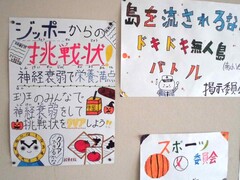 ジッポーからの
挑戦状!
神経衰弱で栄養満点
班のみんなで
神経衰弱をして
挑戦状をクリアしよう!!
島を流されるな
ドキドキ無人島
バトル
掲示委員
スポーツ
委員会